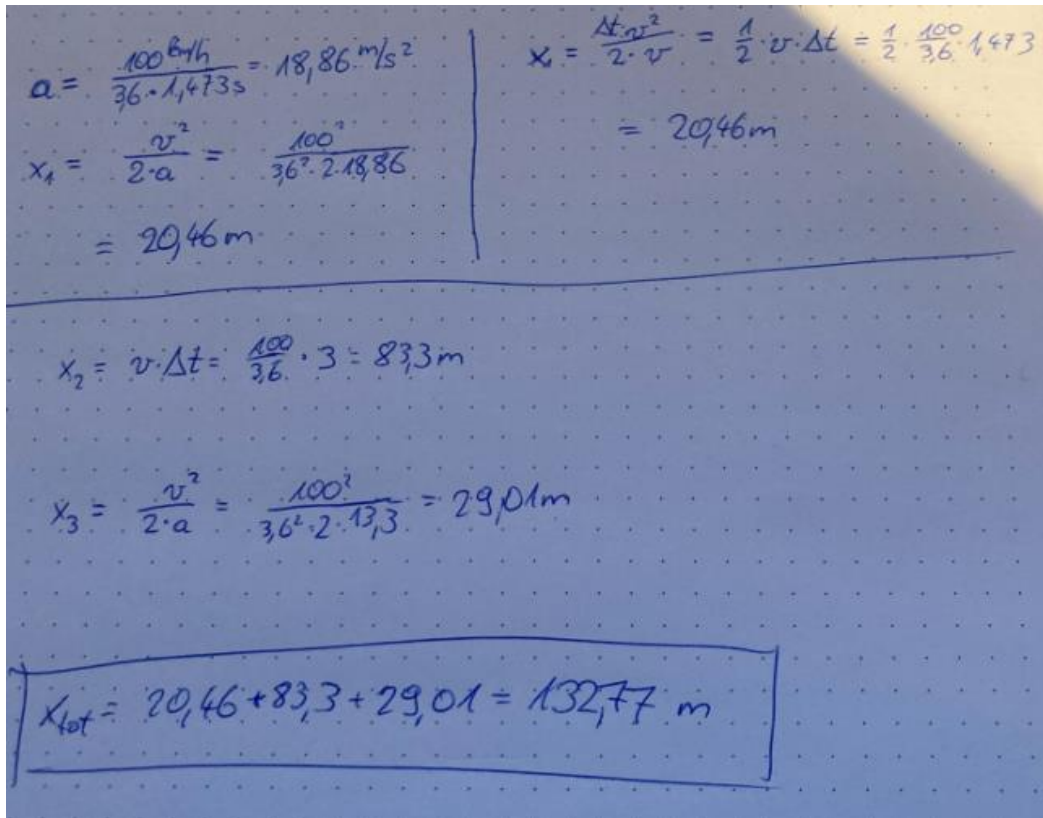 a = 100 km/h / 3,6 · 1,473s = 18,86 m/s²
x₁ = v² / 2·a = 100² / 3,6² · 2 · 18,86
= 20,46 m
x₁ = Δt·v² / 2·v = 1/2 · v · Δt = 1/2 · 100/3,6 · 1,473
= 20,46 m
x₂ = v·Δt = 100/3,6 · 3 = 83,3 m
x₃ = v² / 2·a = 100² / 3,6² · 2 · 13,3 = 29,01 m
x_tot = 20,46 + 83,3 + 29,01 = 132,77 m